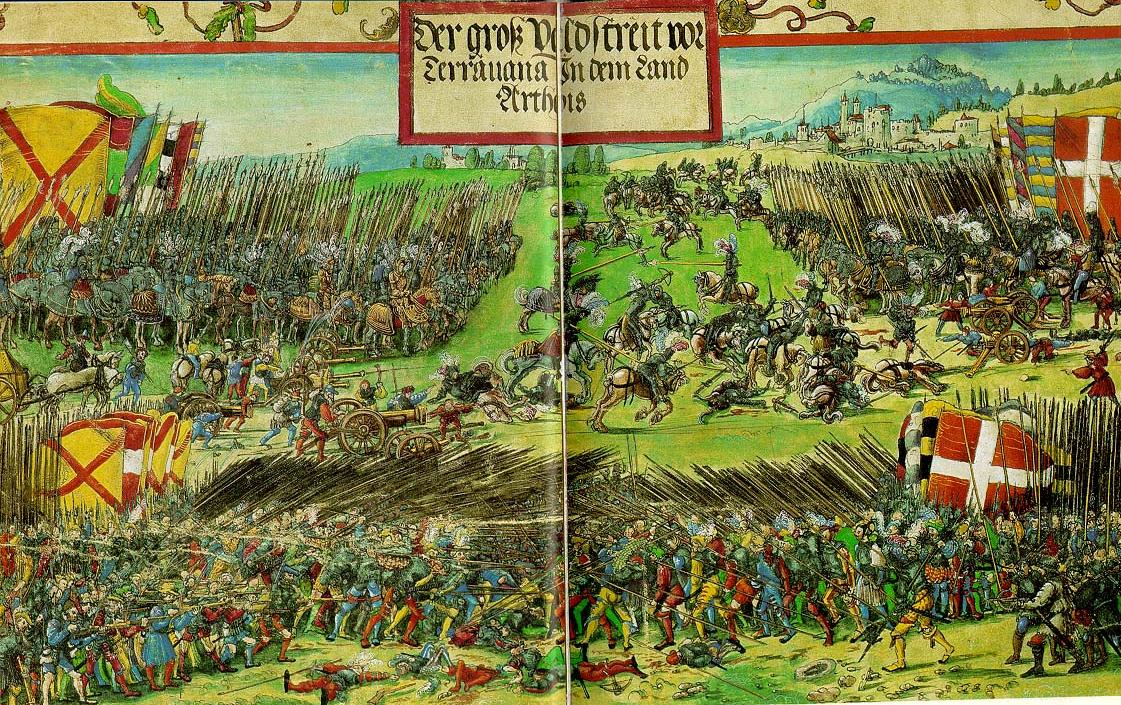 Der groß Veldstreit vor
Terrauana In dem Land
Arthois